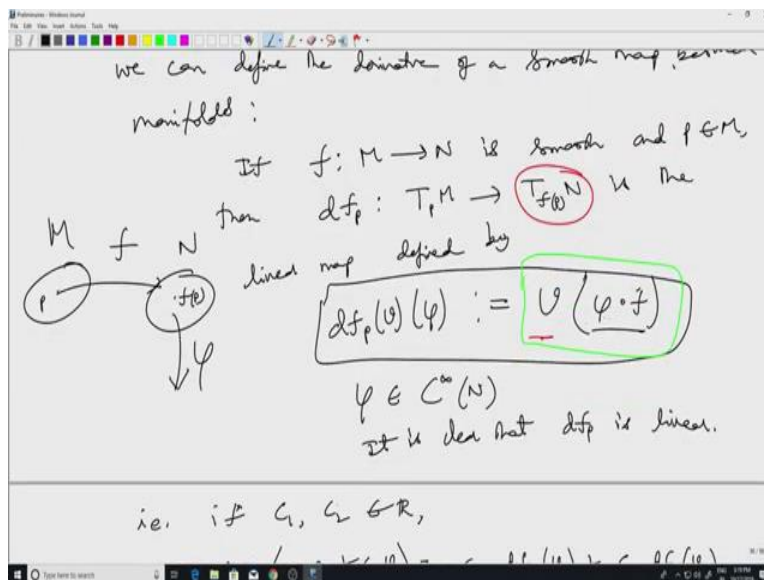 Preliminaries - Windows Journal
File Edit View Insert Actions Tools Help
we can define the derivative of a smooth map between
manifolds :
If f : M → N is smooth and p ∈ M,
then df_p : T_p M → T_{f(p)} N is the
linear map defined by
M f N
p f(p)
φ
df_p(v)(φ) := v(φ∘f)
φ ∈ C^∞(N)
It is clear that df_p is linear.
ie. if c_1, c_2 ∈ R,
Type here to search